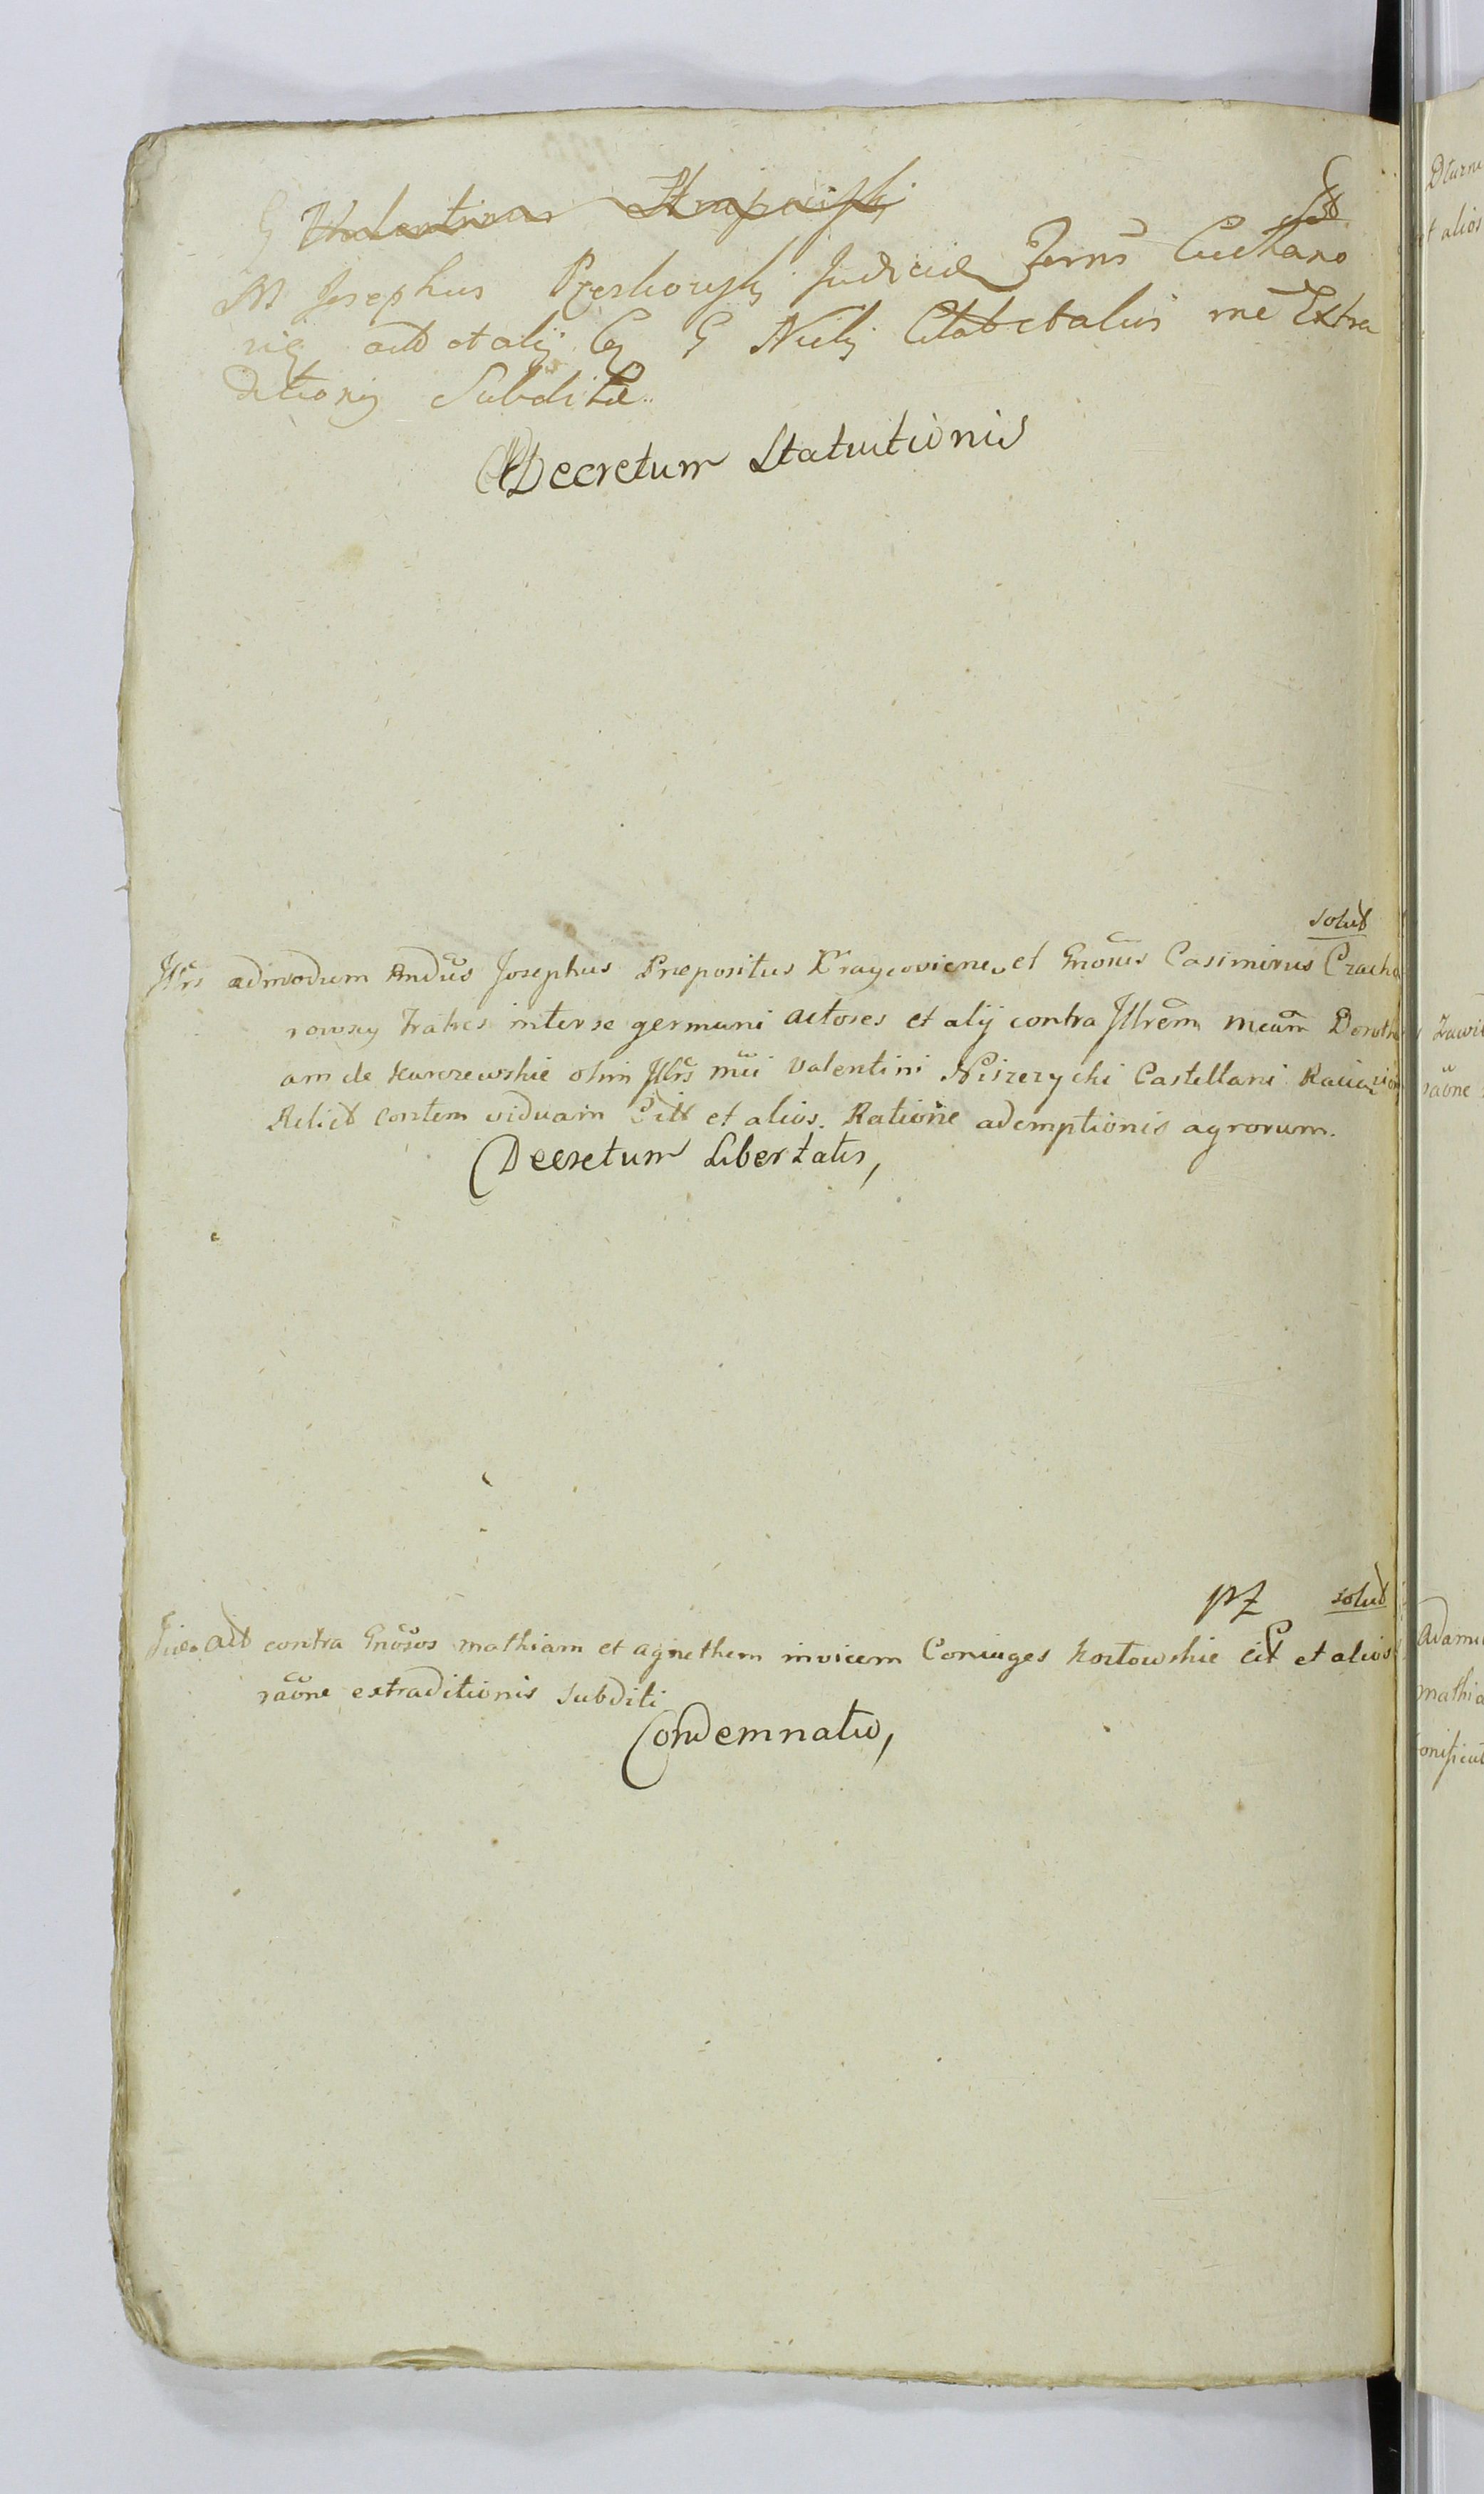 G Valentinus
Sol
M Josephus Judicia Terris
act et alij Cg G citat et alios rne Extra
ditionis Subditi
Decretum Statuitionis
solut
Jllrs admodum Rndus Josephus Praepositus et Gnosus Casimirus Czacho
rowscy Fratres inter se germani actores et alij contra Jllrem Mcam Doroth
am de Kurczewskie olim Jllrs Mci Valentini Niszczycki Castellani
Relict contem viduam Citt et alios. Ratione ademptionis agrorum.
Decretum Libertatis,
pz solut
Jidem act contra Gnosos Mathiam et Agnethem invicem Coniuges Kozlowskie cit et alios
raone extraditionis subditi
Condemnatio,
Dturne
et alios
Zawis
raone
Adamu
Mathia
onificat